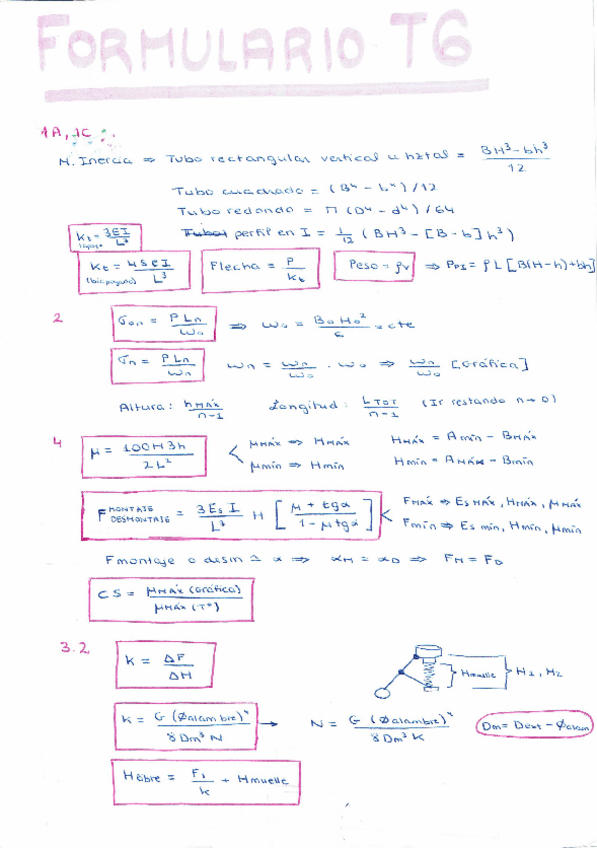 FORMULARIO T6
1A, 1C :
M. Inercia ⇒ Tubo rectangular vertical u hztal = BH³ - bh³ / 12
Tubo cuadrado = (B⁴ - b⁴) / 12
Tubo redondo = π (D⁴ - d⁴) / 64
perfil en I = 1/12 (BH³ - [B - b] h³)
Kt = 3EI / L³
Kt = 48EI / L³
(biapoyado)
Flecha = P / Kt
Peso = ρv ⇒ PPI = ρL [B(H-h)+bh]
2
σon = P Ln / ωo ⇒ ωo = Bo Ho² / 6 = cte
σn = P Ln / ωn
ωn = ωn/ωo · ωo ⇒ ωn/ωo [Gráfica]
Altura: hMÁX / n-1
Longitud: LTOT / n-1 (Ir restando n → 0)
4
μ = 100H3h / 2L²
μMÁX ⇒ HMÁX
HMÁX = Amín - BMÁX
μmín ⇒ Hmín
Hmín = AMÁX - Bmín
F MONTAJE DESMONTAJE = 3Es I / L³ H [ μ + tgα / 1 - μtgα ]
FMÁX ⇒ Es MÁX, HMÁX, μMÁX
Fmín ⇒ Es mín, Hmín, μmín
Fmontaje o desm ≃ α ⇒ αM = αD ⇒ FM = FD
CS = μMÁX (Gráfica) / μMÁX (Tº)
3.2
K = ΔF / ΔH
Hmuelle
H1, H2
K = G (Øalambre)⁴ / 8 Dm³ N
→ N = G (Øalambre)⁴ / 8 Dm³ K
Dm = Dext - Øalam
Hlibre = F1 / K + Hmuelle